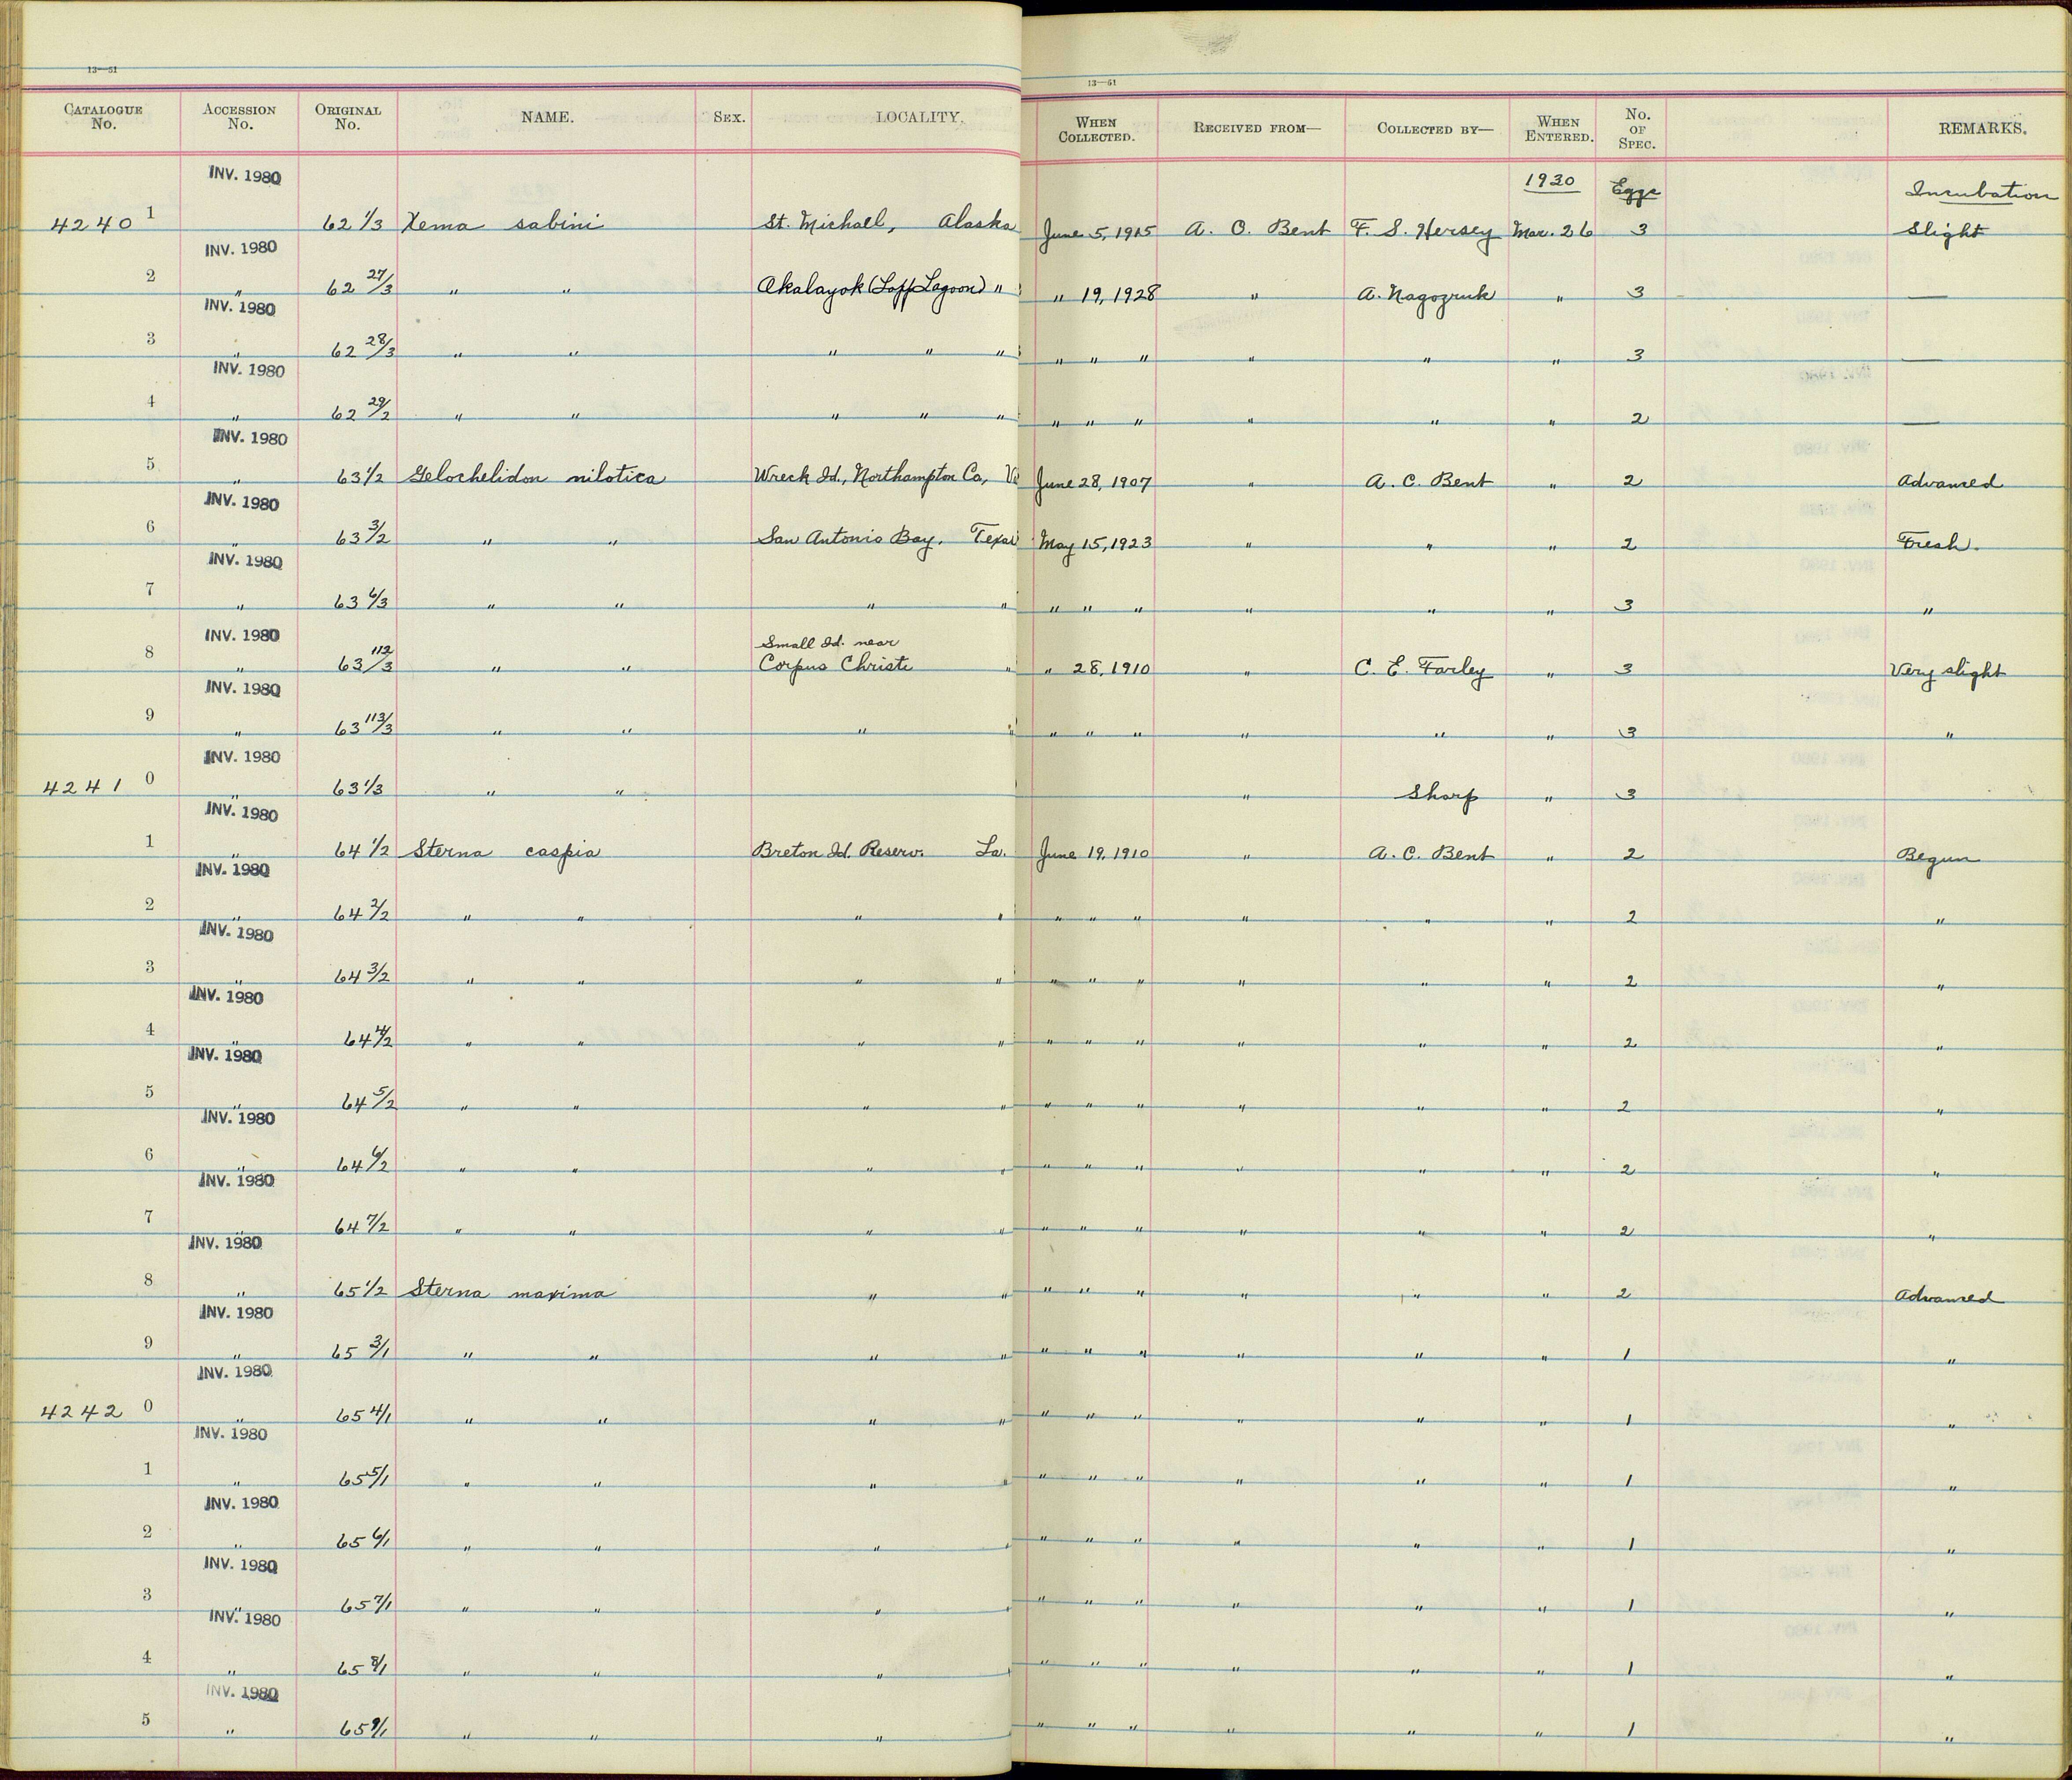 13—51
13—51
CATALOGUE No. ACCESSION No. ORIGINAL No. NAME. SEX. LOCALITY. WHEN COLLECTED. RECEIVED FROM— COLLECTED BY— WHEN ENTERED. No. OF SPEC. REMARKS.
INV. 1980 1930 Eggs Incubation
4240 1 62 1/3 Xema sabini St. Michall, Alaska June 5, 1915 A. C. Bent F. S. Hersey Mar. 26 3 Slight
INV. 1980
2 " 62 27/3 " " Akalayok (Lopp Lagoon) " " 19, 1928 " A. Nagozruk " 3 —
INV. 1980
3 " 62 28/3 " " " " " " " " " " " 3 —
INV. 1980
4 " 62 29/2 " " " " " " " " " " " 2 —
INV. 1980
5 " 63 1/2 Gelochelidon nilotica Wreck Id., Northampton Co., Va June 28, 1907 " A. C. Bent " 2 Advanced
INV. 1980
6 " 63 3/2 " " San Antonio Bay, Texas May 15, 1923 " " " 2 Fresh.
INV. 1980
7 " 63 6/3 " " " " " " " " " " 3 "
INV. 1980 Small Id. near
8 " 63 112/3 " " Corpus Christi " " 28, 1910 " C. E. Farley " 3 Very slight
INV. 1980
9 " 63 113/3 " " " " " " " " " " 3 "
INV. 1980
4241 0 " 63 1/3 " " " Sharp " 3
INV. 1980
1 " 64 1/2 Sterna caspia Breton Id. Reserv. La. June 19, 1910 " A. C. Bent " 2 Begun
INV. 1980
2 " 64 2/2 " " " " " " " " " " 2 "
INV. 1980
3 " 64 3/2 " " " " " " " " " " 2 "
INV. 1980
4 " 64 4/2 " " " " " " " " " " 2 "
INV. 1980
5 " 64 5/2 " " " " " " " " " " 2 "
INV. 1980
6 " 64 6/2 " " " " " " " " " " 2 "
INV. 1980
7 " 64 7/2 " " " " " " " " " " 2 "
INV. 1980
8 " 65 1/2 Sterna maxima " " " " " " " " 2 Advanced
INV. 1980
9 " 65 3/1 " " " " " " " " " " 1 "
INV. 1980
4242 0 " 65 4/1 " " " " " " " " " " 1 "
INV. 1980
1 " 65 5/1 " " " " " " " " " " 1 "
INV. 1980
2 " 65 6/1 " " " " " " " " " " 1 "
INV. 1980
3 " 65 7/1 " " " " " " " " " " 1 "
INV. 1980
4 " 65 8/1 " " " " " " " " " 1 "
INV. 1980
5 " 65 9/1 " " " " " " " " " 1 "